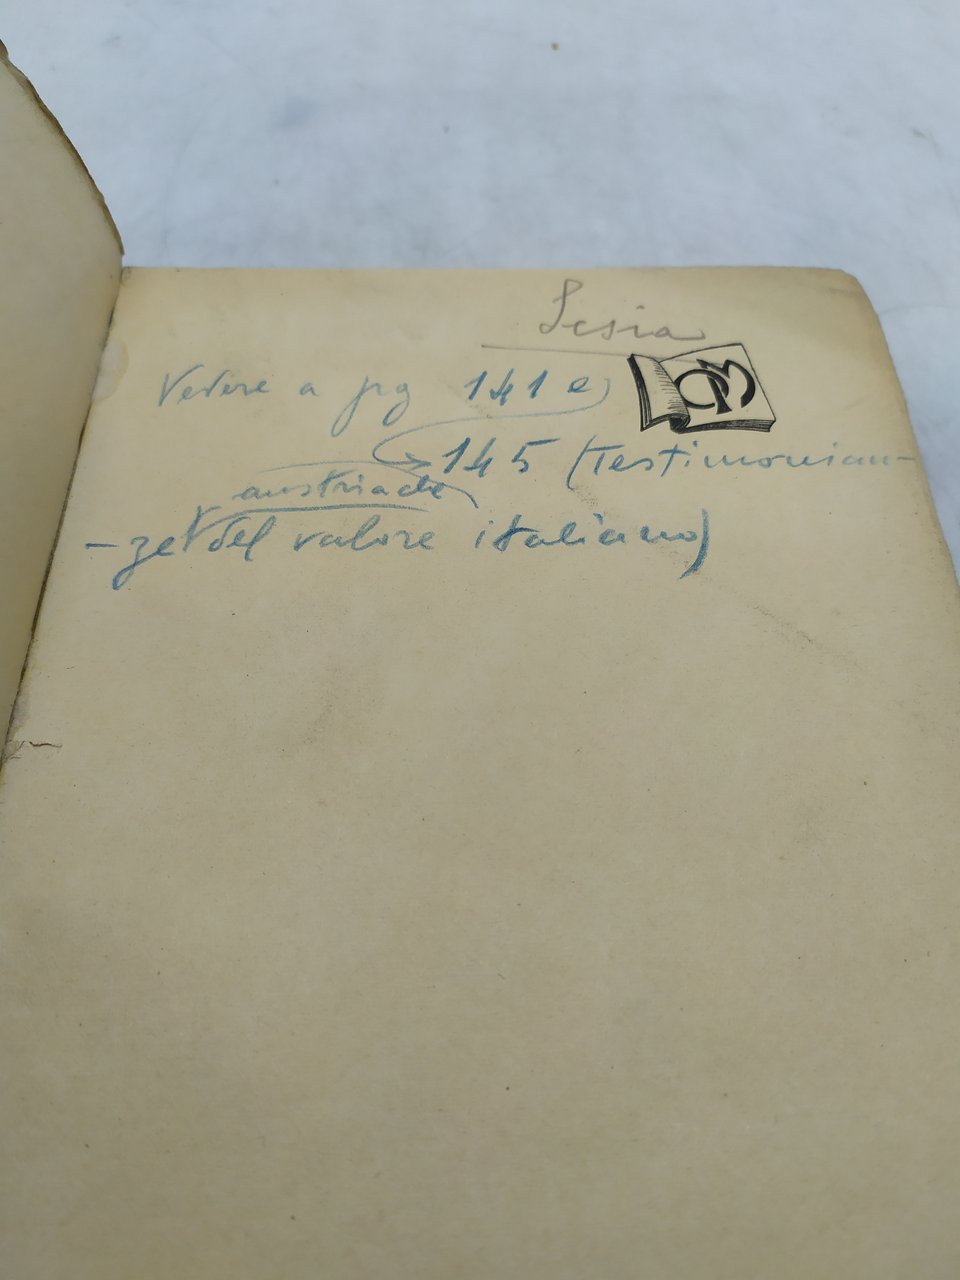 Sesia
Vedere a pg 141 e
145 (Testimonian-
austriache
-ze del valore italiano)